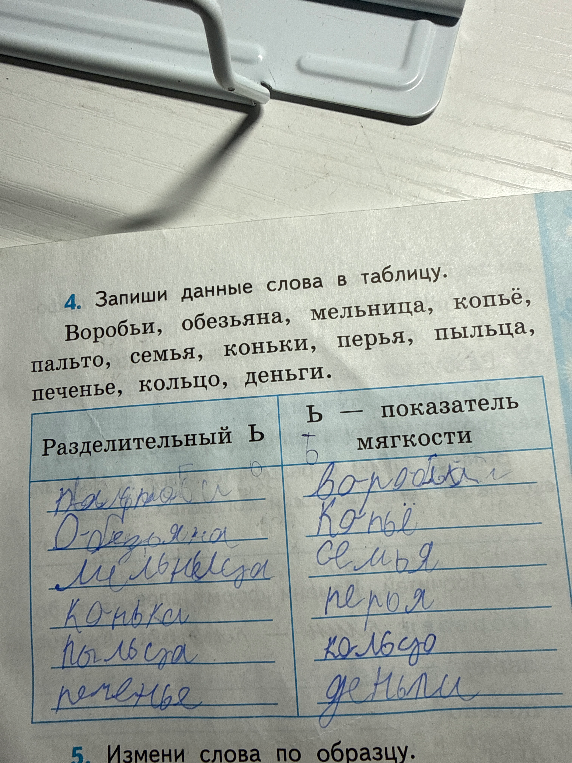 4. Запиши данные слова в таблицу.
Воробьи, обезьяна, мельница, копьё,
пальто, семья, коньки, перья, пыльца,
печенье, кольцо, деньги.
Разделительный Ь
Ь — показатель
мягкости
Обезьяна
Копьё
семья
перья
пыльца
кольцо
печенье
5. Измени слова по образцу.